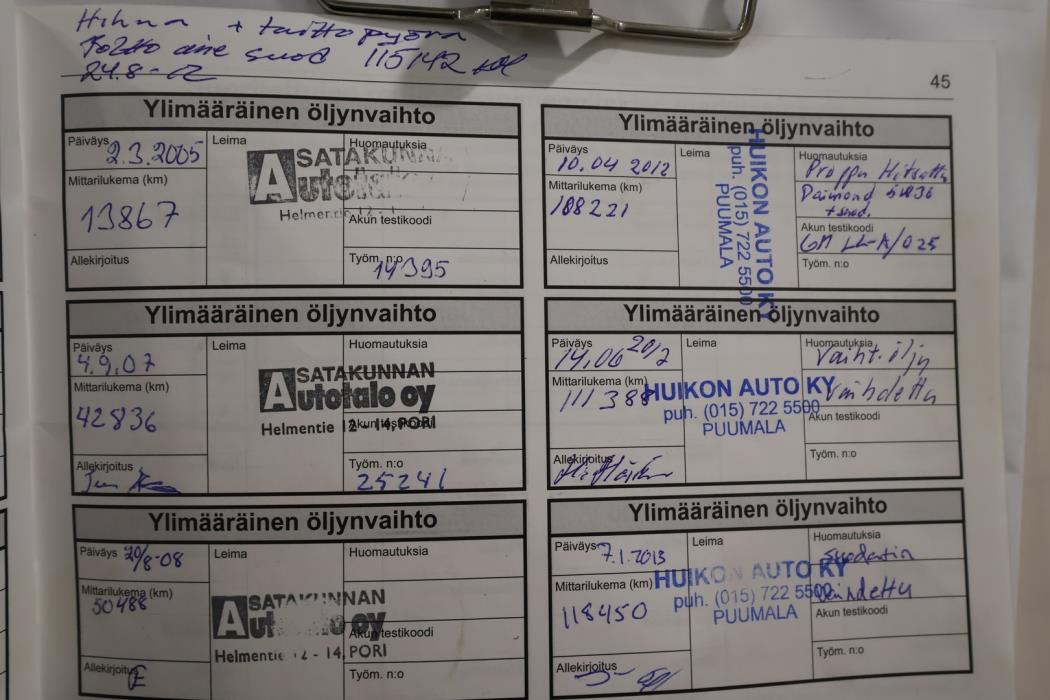 Hihna + taittopyörä
Poltto aine suod 115142
24.8-12
45
Ylimääräinen öljynvaihto
Päiväys 2.3.2005
Leima
SATAKUNNAN
Autotalo
Huomautuksia
Mittarilukema (km)
13867
Akun testikoodi
Allekirjoitus
Työm. n:o
14395
Ylimääräinen öljynvaihto
Päiväys
4.9.07
Leima
SATAKUNNAN
Autotalo oy
Helmentie 12 - 14, PORI
Huomautuksia
Mittarilukema (km)
42836
Akun testikoodi
Allekirjoitus
Työm. n:o
25241
Ylimääräinen öljynvaihto
Päiväys 20/8-08
Leima
SATAKUNNAN
Autotalo oy
Helmentie 12 - 14, PORI
Huomautuksia
Mittarilukema (km)
50488
Akun testikoodi
Allekirjoitus
Työm. n:o
Ylimääräinen öljynvaihto
Päiväys
10.04 2012
Leima
HUIKON AUTO KY
puh. (015) 722 5500
PUUMALA
Huomautuksia
Mittarilukema (km)
108221
+ suod.
Akun testikoodi
GM LL-A/025
Allekirjoitus
Työm. n:o
Ylimääräinen öljynvaihto
Päiväys
14.06 2012
Leima
HUIKON AUTO KY
puh. (015) 722 5500
PUUMALA
Huomautuksia
Vaiht. öljy
Vaihdettu
Mittarilukema (km)
111388
Akun testikoodi
Allekirjoitus
Työm. n:o
Ylimääräinen öljynvaihto
Päiväys 7.1.2013
Leima
HUIKON AUTO KY
puh. (015) 722 5500
PUUMALA
Huomautuksia
Suodatin
Vaihdettu
Mittarilukema (km)
118450
Akun testikoodi
Allekirjoitus
Työm. n:o